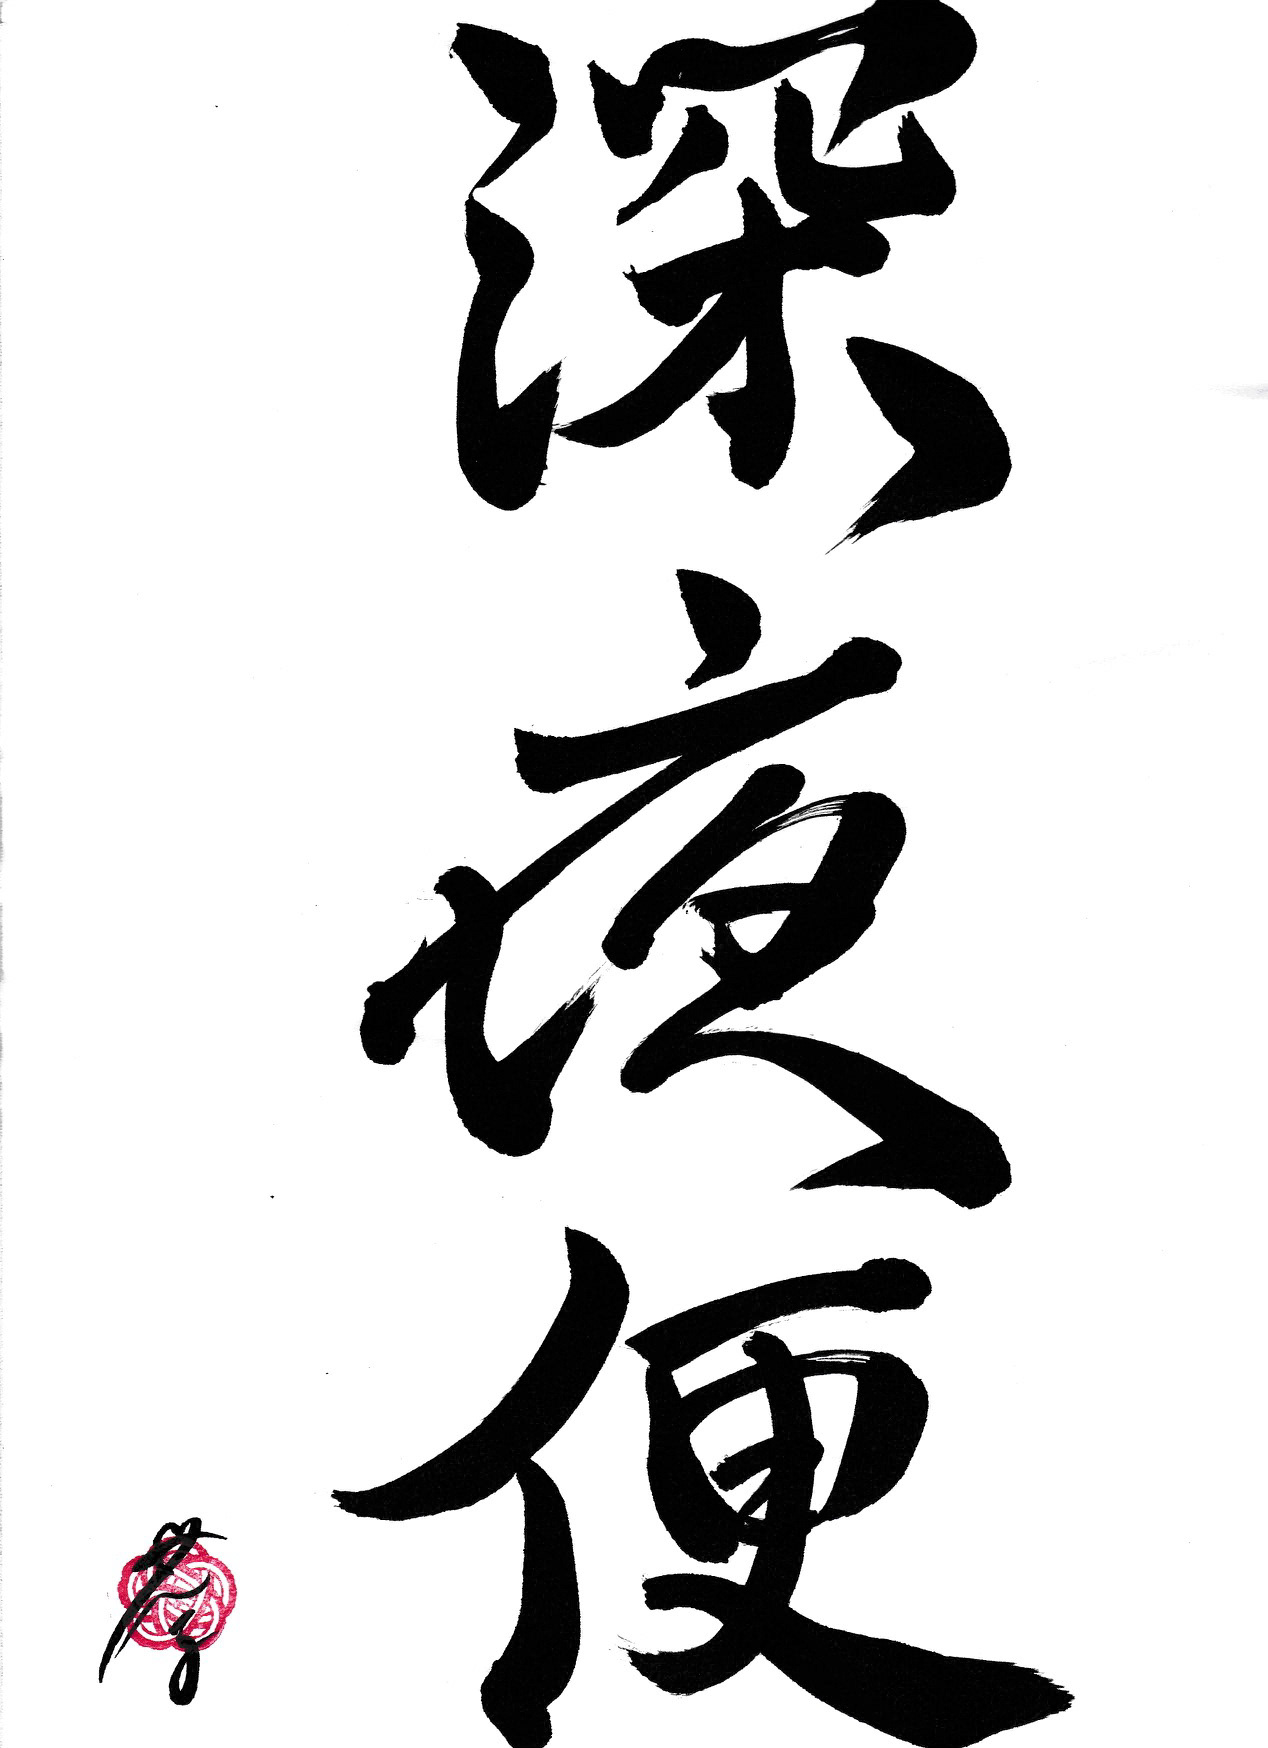 深夜便